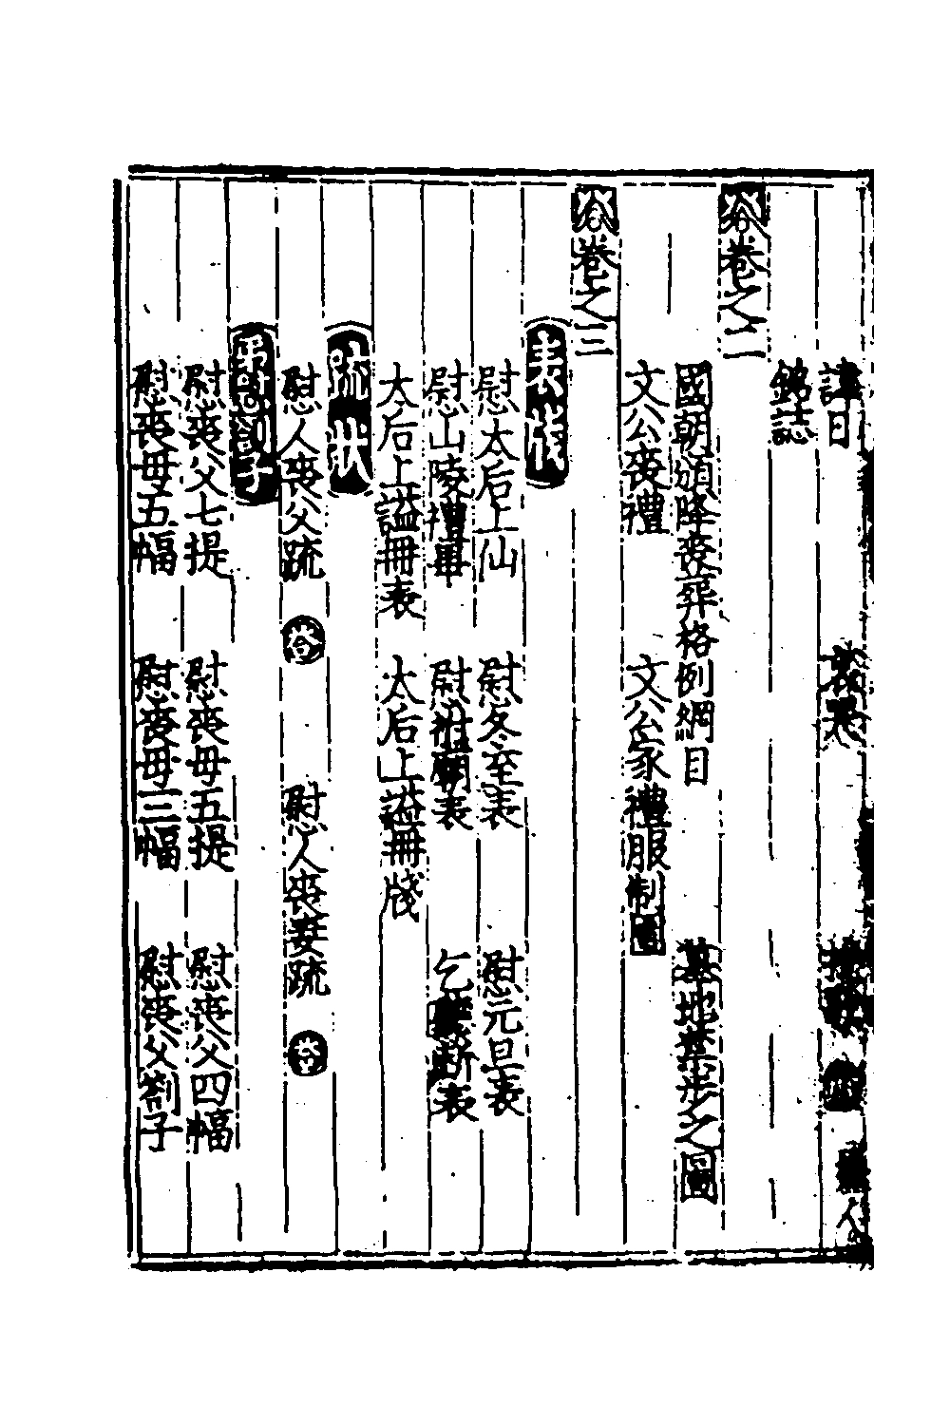 諱日
人
銘誌
卷之二
國朝頒降喪葬格例綱目 墓地禁步之圖
文公喪禮 文公家禮服制圖
卷之三
表牋
慰太后上仙 慰冬至表 慰元旦表
慰山陵禮畢 慰祔廟表 乞 斷表
太后上謚冊表 太后上謚冊牋
疏狀
慰人喪父疏 答 慰人喪妻疏 答
劄子
慰喪父七提 慰喪母五提 慰喪父四幅
慰喪母五幅 慰喪母三幅 慰喪父劄子